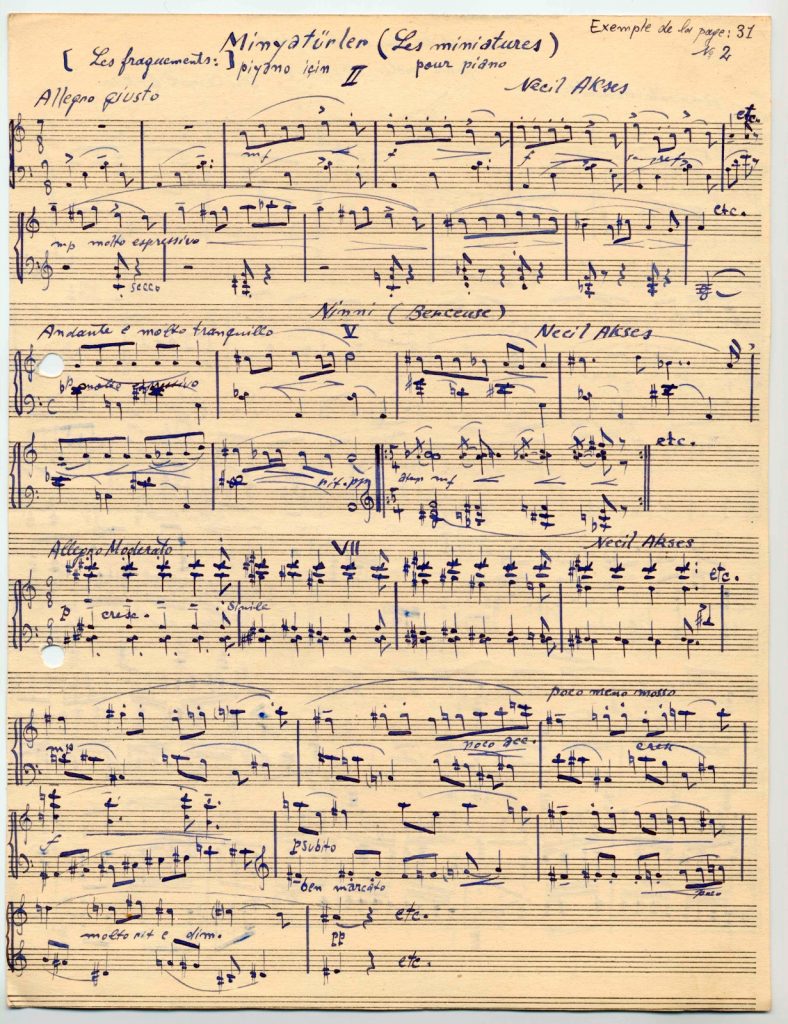 Exemple de la page: 31
№ 2
Minyatürler (Les miniatures)
[Les fraguements:] piyano için II pour piano
Necil Akses
Allegro giusto
etc.
mf f f
7 8
mp molto espressivo
secco
etc.
Ninni (Berceuse)
Andante e molto tranquillo V Necil Akses
pp molto espressivo
C
rit. pp mf
5 4
etc.
Allegro Moderato VII Necil Akses
etc.
p cresc. simile
poco meno mosso
mp poco acc. cresc
f p subito
ben marcato poco
etc.
molto rit e dim. pp
etc.